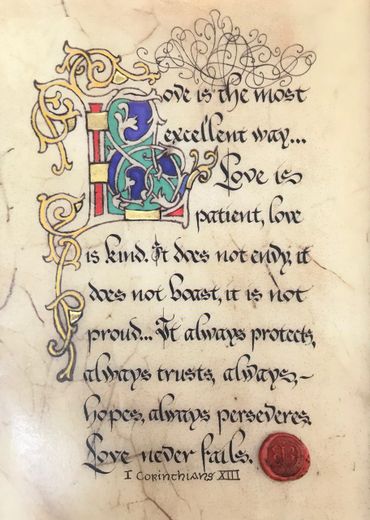 Love is the most
excellent way...
Love is
patient, love
is kind. It does not envy, it
does not boast, it is not
proud... It always protects,
always trusts, always
hopes, always perseveres.
Love never fails.
I Corinthians XIII